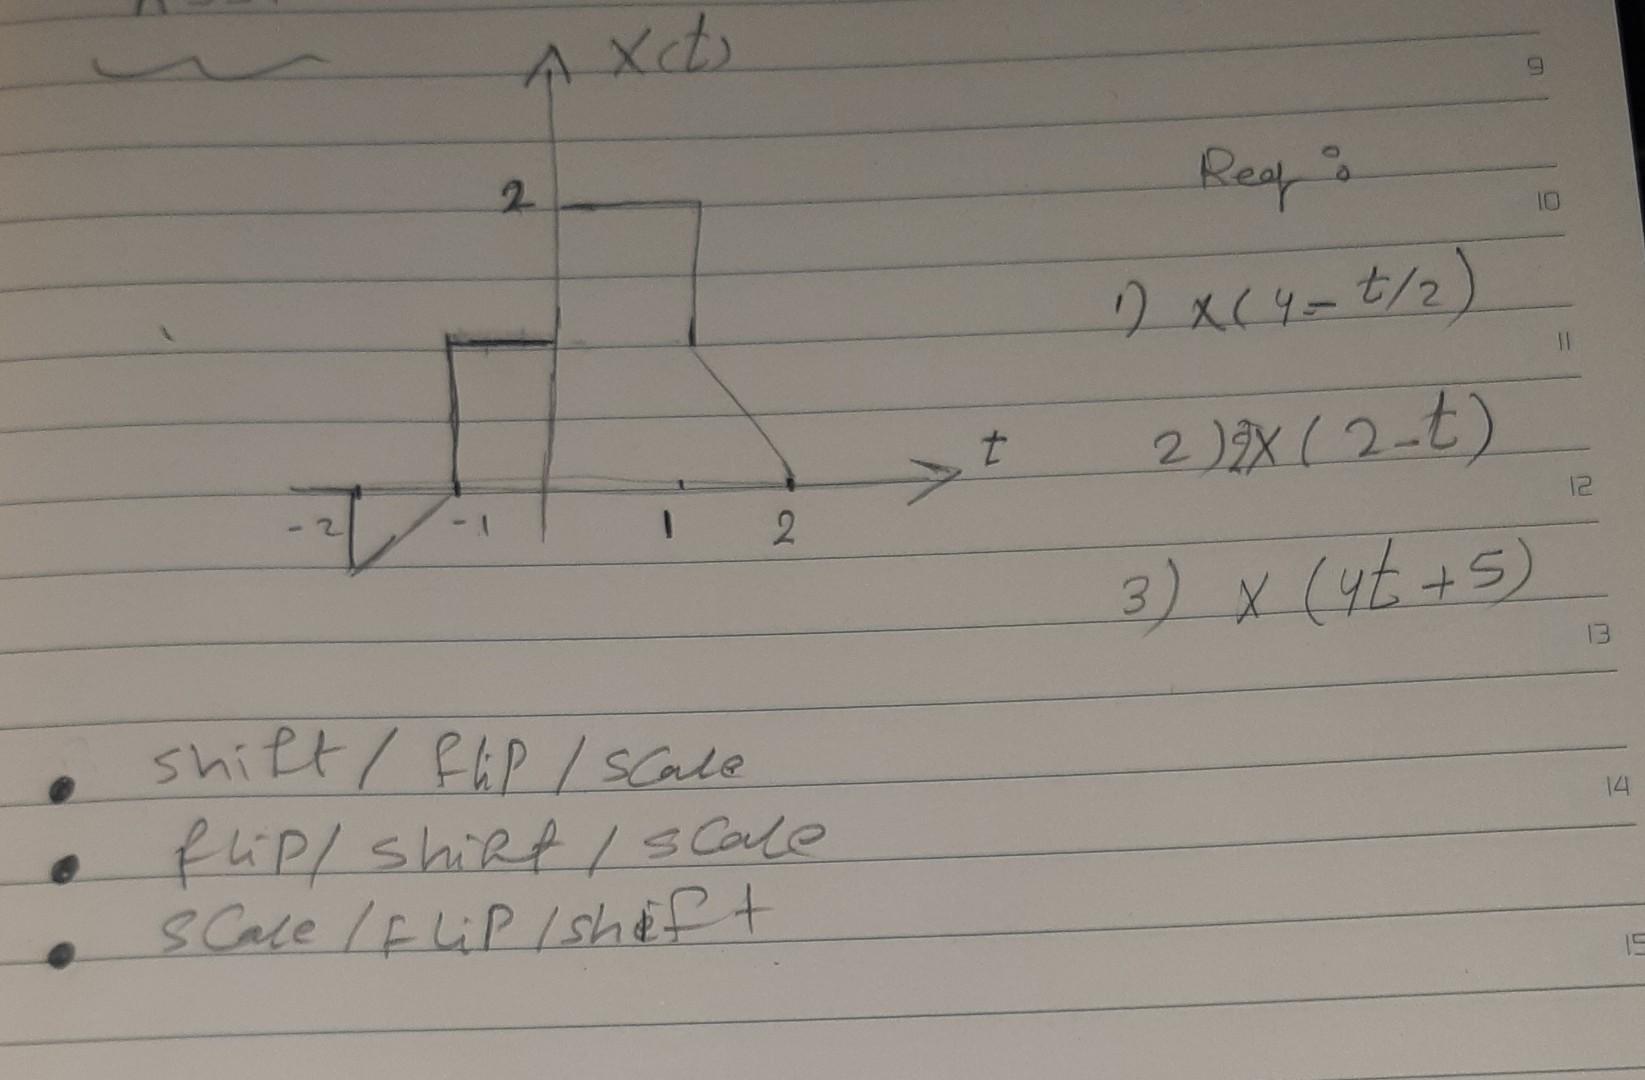 x(t)
9
Req :
2
10
1) x(4 - t/2)
11
t
2) x(2-t)
12
-2 -1 1 2
3) x(4t+5)
13
• shift / flip / scale
14
• flip / shift / scale
• scale / flip / shift
15